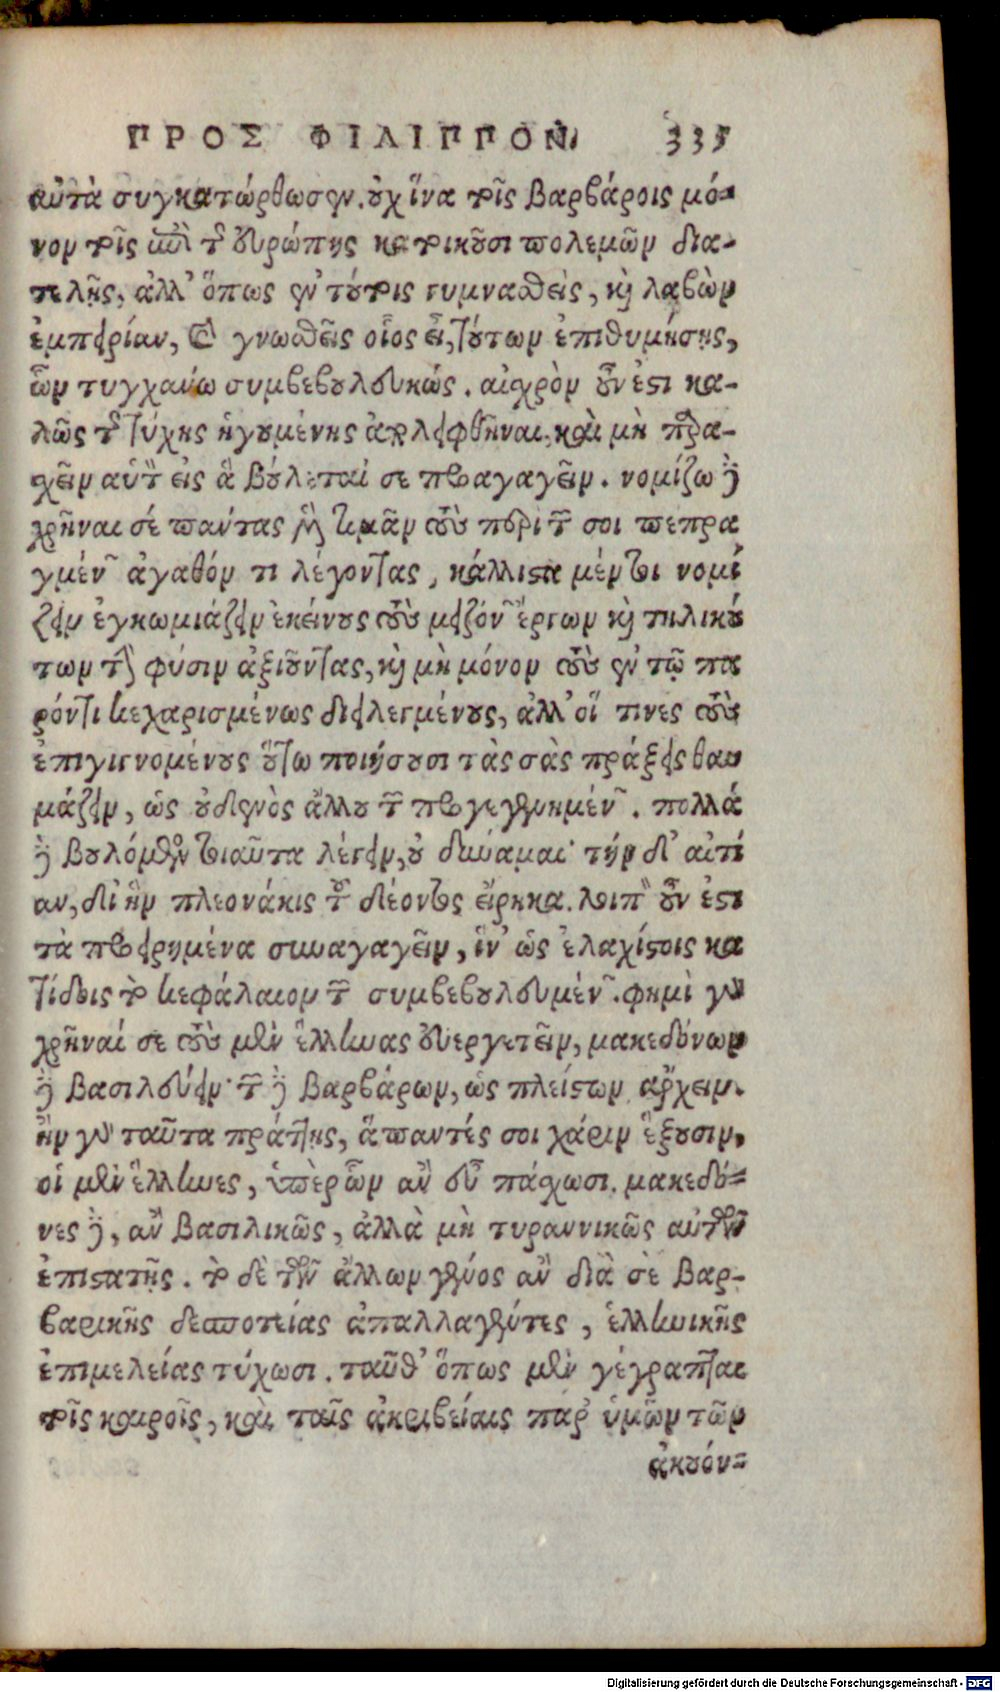 ΠΡΟΣ ΦΙΛΙΠΠΟΝ. 335
αὐτὰ συγκατώρθωσεν. οὐχ ἵνα τοῖς βαρβάροις μό-
νον τοῖς ἐπὶ τῆς εὐρώπης κατοικοῦσι πολεμῶν δια-
τελῇς, ἀλλ' ὅπως ἐν τούτοις γυμνασθεὶς, καὶ λαβὼν
ἐμπειρίαν, καὶ γνωσθεῖς οἷος εἶ, τούτων ἐπιθυμήσῃς,
ὧν τυγχάνω συμβεβουλευκώς. αἰσχρὸν οὖν ἐστι κα-
λῶς τῆς τύχης ἡγουμένης ἀπολειφθῆναι, καὶ μὴ παρα-
σχεῖν αὑτὸν εἰς ἃ βούλεταί σε προαγαγεῖν. νομίζω δὲ
χρῆναι σέ πάντας μὲν τιμᾶν τοὺς περὶ τῶν σοι πεπρα
γμένων ἀγαθόν τι λέγοντας, κάλλιστα μέντοι νομί
ζειν ἐγκωμιάζειν ἐκείνους τοὺς μειζόνων ἔργων καὶ τηλικού
των τὴν φύσιν ἀξιοῦντας, καὶ μὴ μόνον τοὺς ἐν τῷ πα
ρόντι κεχαρισμένως διειλεγμένους, ἀλλ' οἵ τινες τοὺς
ἐπιγιγνομένους οὕτω ποιήσουσι τὰς σὰς πράξεις θαυ
μάζειν, ὡς οὐδενὸς ἄλλου τῶν προγεγενημένων. πολλὰ
δὲ βουλόμενος τοιαῦτα λέγειν, οὐ δύναμαι· τὴν δ' αἰτί
αν, δι' ἣν πλεονάκις τοῦ δέοντος εἴρηκα. λοιπὸν οὖν ἐστι
τὰ προειρημένα συναγαγεῖν, ἵν' ὡς ἐλαχίστοις κα
τίδοις τὸ κεφάλαιον τῶν συμβεβουλευμένων. φημὶ γὰρ
χρῆναί σε τοὺς μὲν ἕλληνας εὐεργετεῖν, μακεδόνων
δὲ βασιλεύειν· τῶν δὲ βαρβάρων, ὡς πλείστων ἄρχειν.
ἢν γὰρ ταῦτα πράττῃς, ἅπαντές σοι χάριν ἕξουσιν,
οἱ μὲν ἕλληνες, ὑπὲρ ὧν ἂν εὖ πάσχωσι. μακεδό-
νες δὲ, ἂν βασιλικῶς, ἀλλὰ μὴ τυραννικῶς αὐτῶν
ἐπιστατῇς. τὸ δὲ τῶν ἄλλων γένος ἂν διὰ σὲ βαρ-
βαρικῆς δεσποτείας ἀπαλλαγέντες, ἑλληνικῆς
ἐπιμελείας τύχωσι. ταῦθ' ὅπως μὲν γέγραπται
τοῖς καιροῖς, καὶ ταῖς ἀκριβείαις παρ' ὑμῶν τῶν
ἀκουόν-
Digitalisierung gefördert durch die Deutsche Forschungsgemeinschaft - DFG